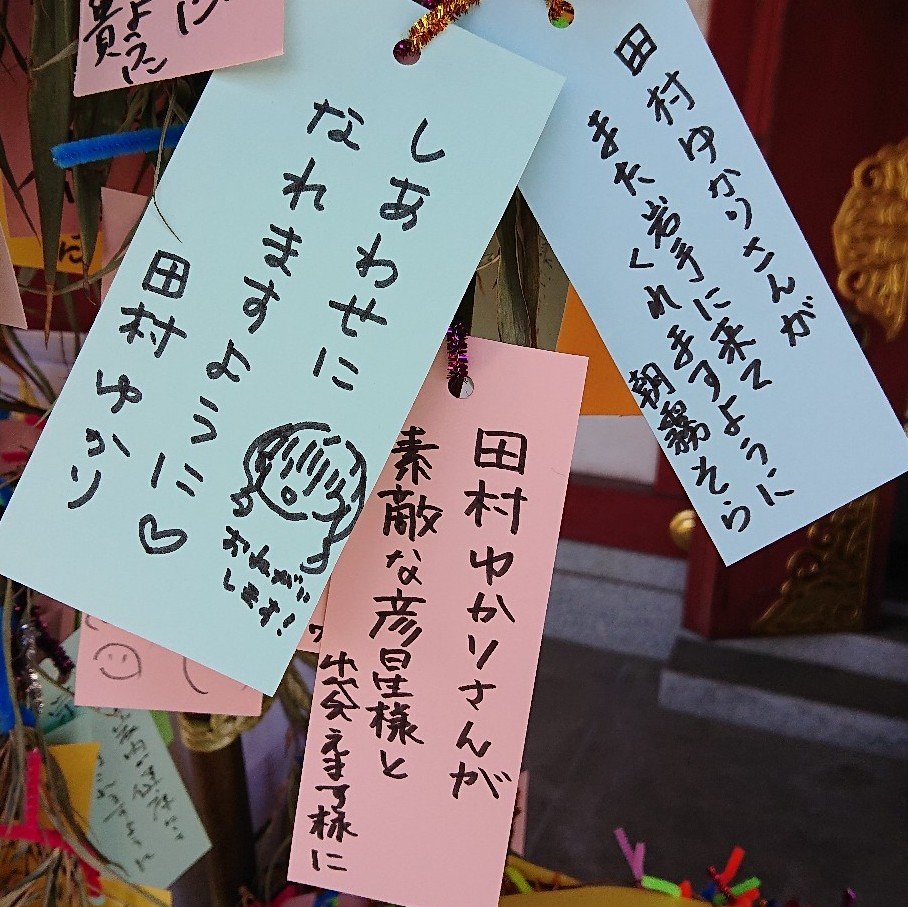 田村ゆかりさんが
また岩手に来て
くれますように
朝霧そら
しあわせに
なれますように♡
田村ゆかり
おねがい
します!
田村ゆかりさんが
素敵な彦星様と
出会えます様に